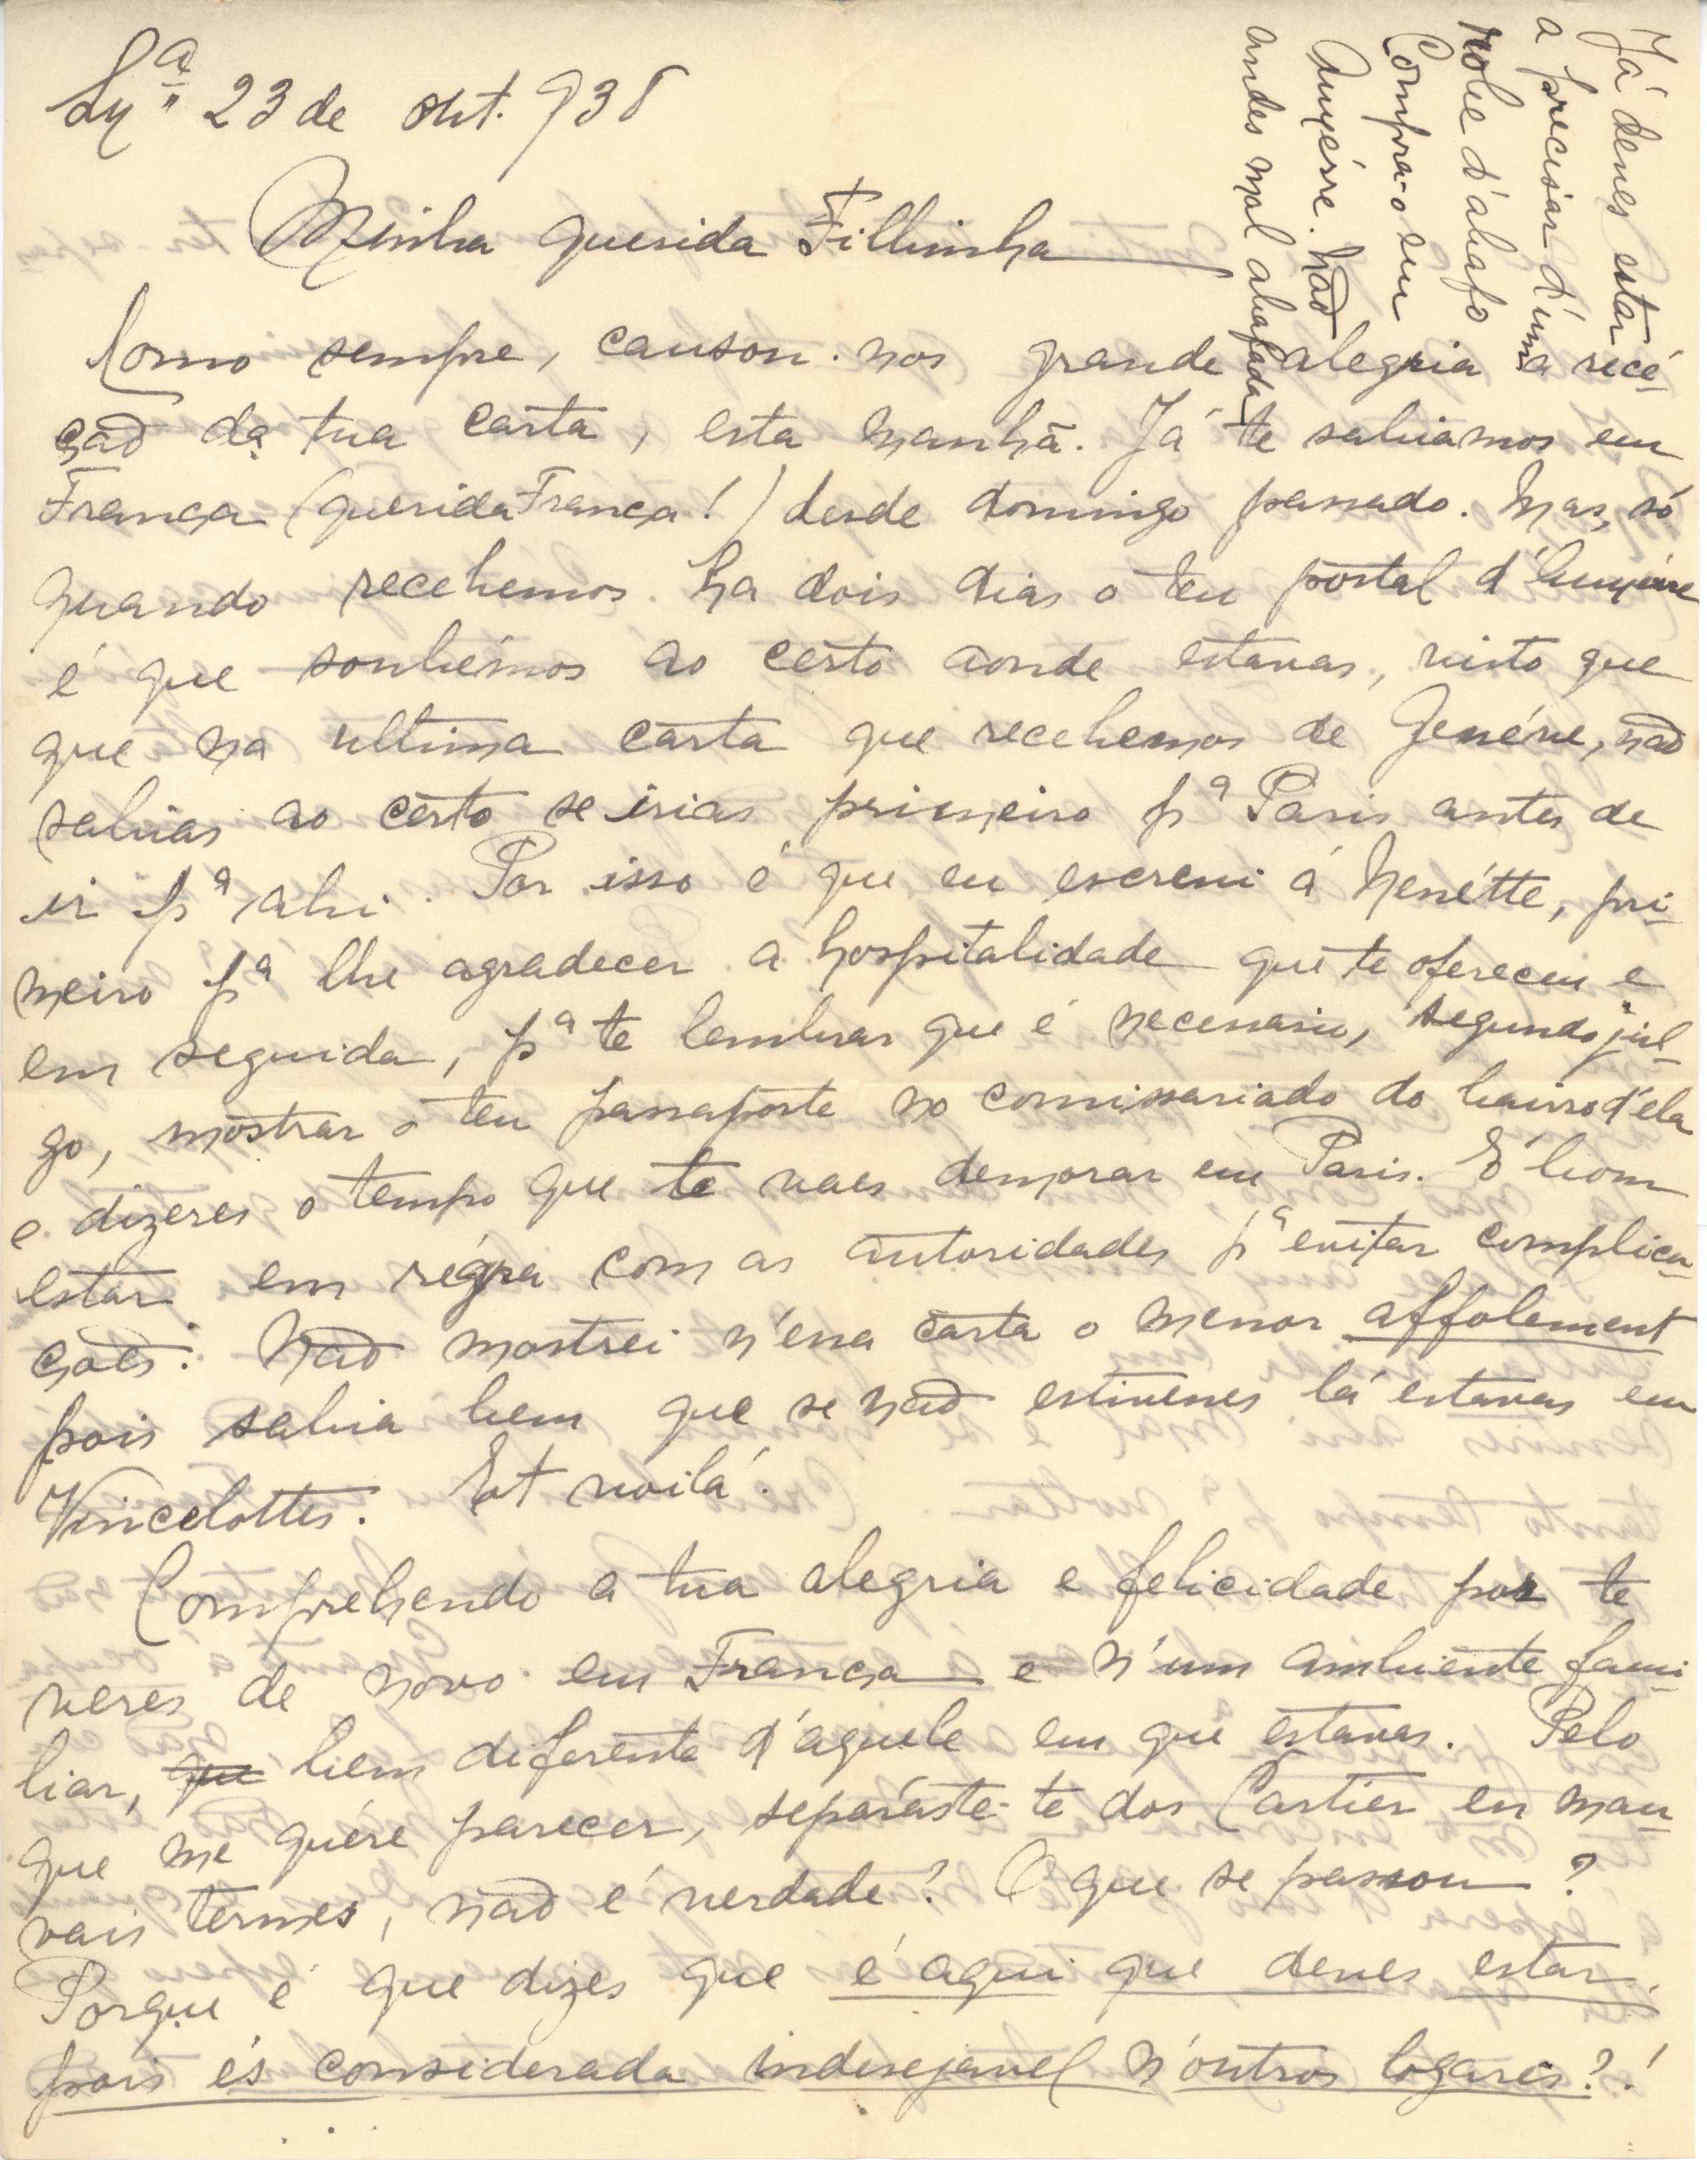 Lxª 23 de Out. 938
Já deves estar
a precisar d'um
robe d'abafo
Compra-o em
Auxérre. Não
andes mal abafada
Minha querida Filhinha
Como sempre, causou-nos grande alegria a recé-
ção da tua carta, esta manhã. Já te sabiamos em
França (querida França!) desde domingo passado. Mas, só
quando recebemos ha dois dias o teu postal d'Auxérre
é que soubémos ao certo aonde estavas, visto que
que na ultima carta que recebemos de Genéve, não
sabias ao certo se irias primeiro pª Paris antes de
ir pª ahi. Por isso é que eu escrevi á Nenétte, pri-
meiro pª lhe agradecer a hospitalidade que te ofereceu e
em seguida, pª te lembrar que é necessario, segundo jul-
go, mostrar o teu passaporte no comissariado do bairro d'ela
e dizeres o tempo que te vaes demorar em Paris. É bom
estar em régra com as autoridades pª evitar complica-
ções. Não mostrei n'essa carta o menor affolement
pois sabia bem que se não estivesses lá estavas em
Vincelottes. Et voilá.
Comprehendo a tua alegria e felicidade por te
veres de novo em França e n'um ambiente fami-
liar, que bem diferente d'aquele em que estavas. Pelo
que me quére parecer, separáste-te dos Cartier en mau-
vais termes, não é verdade? O que se passou?
Porque é que dizes que é aqui que deves estar,
pois és considerada indesejavel n'outros logares?!